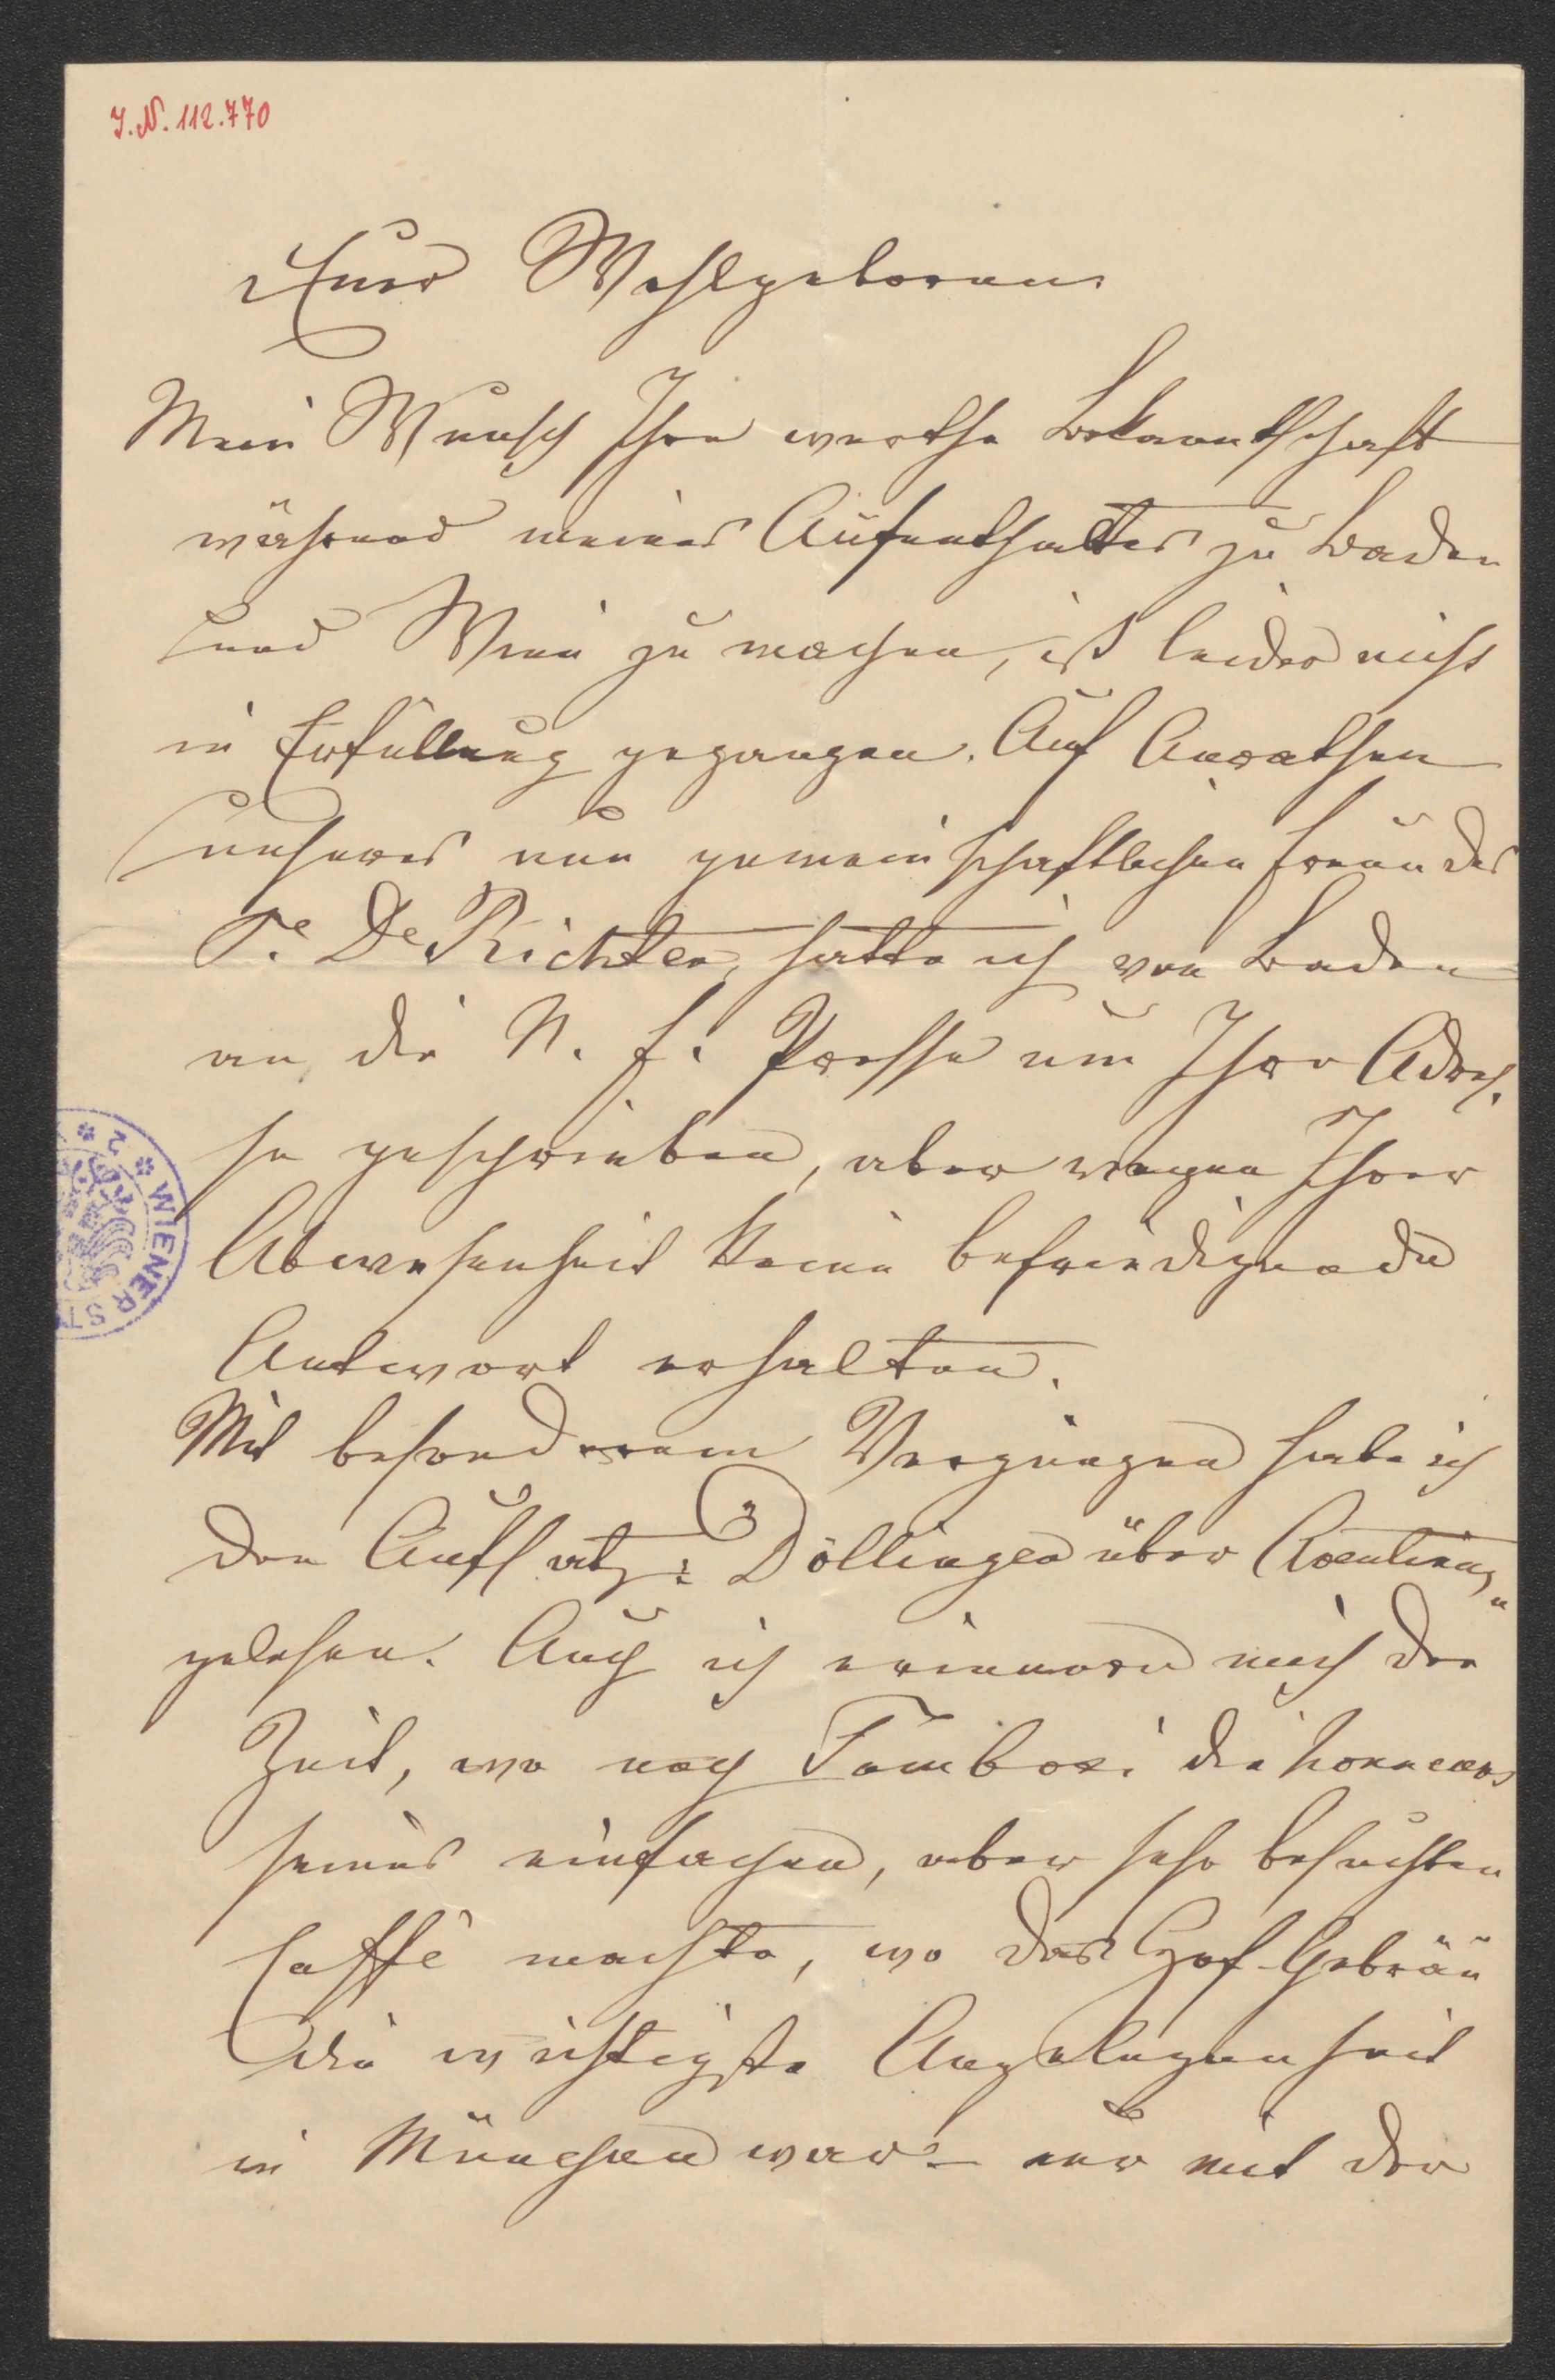 J.N. 112.770
Euer Wohlgeboren
Mein Wunsch Ihre werthe Bekanntschaft
während meines Aufenthaltes zu Baden
und Wien zu machen, ist leider nicht
in Erfüllung gegangen. Auf Anrathen
unseres nun gemeinschaftlichen Freundes
Dr Richter, hatte ich von Baden
an die N. f. Presse um Ihre Adres-
se geschrieben, aber wegen Ihrer
Abwesenheit keine befriedigende
Antwort erhalten.
Mit besonderem Vergnügen habe ich
den Aufsatz: „Döllinger über
gelesen. Auch ich erinnere mich der
Zeit, wo noch Tambosi die honneurs
seines einfachen, aber sehr besuchten
Caffé machte, wo das Hof-Gebräu
die wichtigste Angelegenheit
in München war – nur mit der
WIENER ST